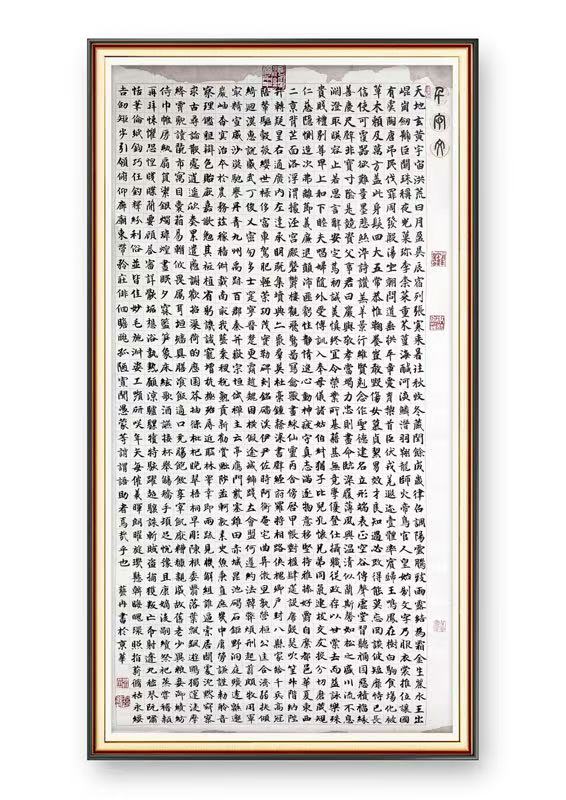 千字文
天地玄黃宇宙洪荒日月盈昃辰宿列張寒來暑往秋收冬藏閏餘成歲律呂調陽雲騰致雨露結爲霜金生麗水玉出
崑崗劍號巨闕珠稱夜光菓珍李柰菜重芥薑海鹹河淡鱗潛羽翔龍師火帝鳥官人皇始制文字乃服衣裳推位讓國
有虞陶唐弔民伐罪周發殷湯坐朝問道垂拱平章愛育黎首臣伏戎羌遐邇壹體率賓歸王鳴鳳在樹白駒食場化被
草木賴及萬方蓋此身髮四大五常恭惟鞠養豈敢毀傷女慕貞絜男效才良知過必改得能莫忘罔談彼短靡恃己長
信使可覆器欲難量墨悲絲淬詩讚羔羊景行維賢剋念作聖德建名立形端表正空谷傳聲虛堂習聽禍因惡積福緣
善慶尺璧非寶寸陰是競資父事君曰嚴與敬孝當竭力忠則盡命臨深履薄夙興溫凊似蘭斯馨如松之盛川流不息
淵澄取映容止若思言辭安定篤初誠美慎終宜令榮業所基藉甚無竟學優登仕攝職從政存以甘棠去而益詠樂殊
貴賤禮別尊卑上和下睦夫唱婦隨外受傅訓入奉母儀諸姑伯叔猶子比兒孔懷兄弟同氣連枝交友投分切磨箴規
仁慈隱惻造次弗離節義廉退顛沛匪虧性靜情逸心動神疲守真志滿逐物意移堅持雅操好爵自縻都邑華夏東西
二京背芒面洛浮渭據涇宮殿盤鬱樓觀飛驚圖寫禽獸畫綵仙靈丙舍傍啓甲帳對楹肆筵設席鼓瑟吹笙升階納陛
弁轉疑星右通廣內左達承明既集墳典亦聚群英杜稾鍾隸漆書壁經府羅將相路俠槐卿戶封八縣家給千兵高冠
陪輦驅轂振纓世祿侈富車駕肥輕策功茂實勒碑刻銘磻溪伊尹佐時阿衡奄宅曲阜微旦孰營桓公匡合濟弱扶傾
綺迴漢惠說感武丁俊乂密勿多士寔寧晉楚更霸趙魏困橫假途滅虢踐土會盟何遵約法韓弊煩刑起翦頗牧用軍
最精宣威沙漠馳譽丹青九州禹跡百郡秦并嶽宗恒岱禪主云亭鴈門紫塞雞田赤城昆池碣石鉅野洞庭曠遠綿邈
巖岫杳冥治本於農務茲稼穡俶載南畝我藝黍稷稅熟貢新勸賞黜陟孟軻敦素史魚秉直庶幾中庸勞謙謹勑聆音
察理鑑貌辯色貽厥嘉猷勉其祗植省躬譏誡寵增抗極殆辱近恥林皋幸即兩疏見機解組誰逼索居閑處沉默寂寥
求古尋論散慮逍遙欣奏累遣慼謝歡招渠荷的歷園莽抽條枇杷晚翠梧桐早彫陳根委翳落葉飄颻遊鵾獨運凌摩
絳霄耽讀翫市寓目囊箱易輶攸畏屬耳垣墻具膳飡飯適口充腸飽飫烹宰飢厭糟糠親戚故舊老少異糧妾御績紡
侍巾帷房紈扇員絜銀燭煒煌晝眠夕寐藍笋象床絃歌酒讌接杯舉觴矯手頓足悅豫且康嫡後嗣續祭祀蒸嘗稽顙
再拜悚懼恐惶牋牒簡要顧答審詳骸垢想浴執熱願涼驢騾犢特駭躍超驤誅斬賊盜捕獲叛亡布射遼丸嵇琴阮嘯
恬筆倫紙鈞巧任釣釋紛利俗並皆佳妙毛施淑姿工顰妍咲年矢每催羲暉朗曜旋璣懸斡晦魄環照指薪修祜永綏
吉劭矩步引領俯仰廊廟束帶矜莊徘徊瞻眺孤陋寡聞愚蒙等誚謂語助者焉哉乎也 蔡冉書於京華